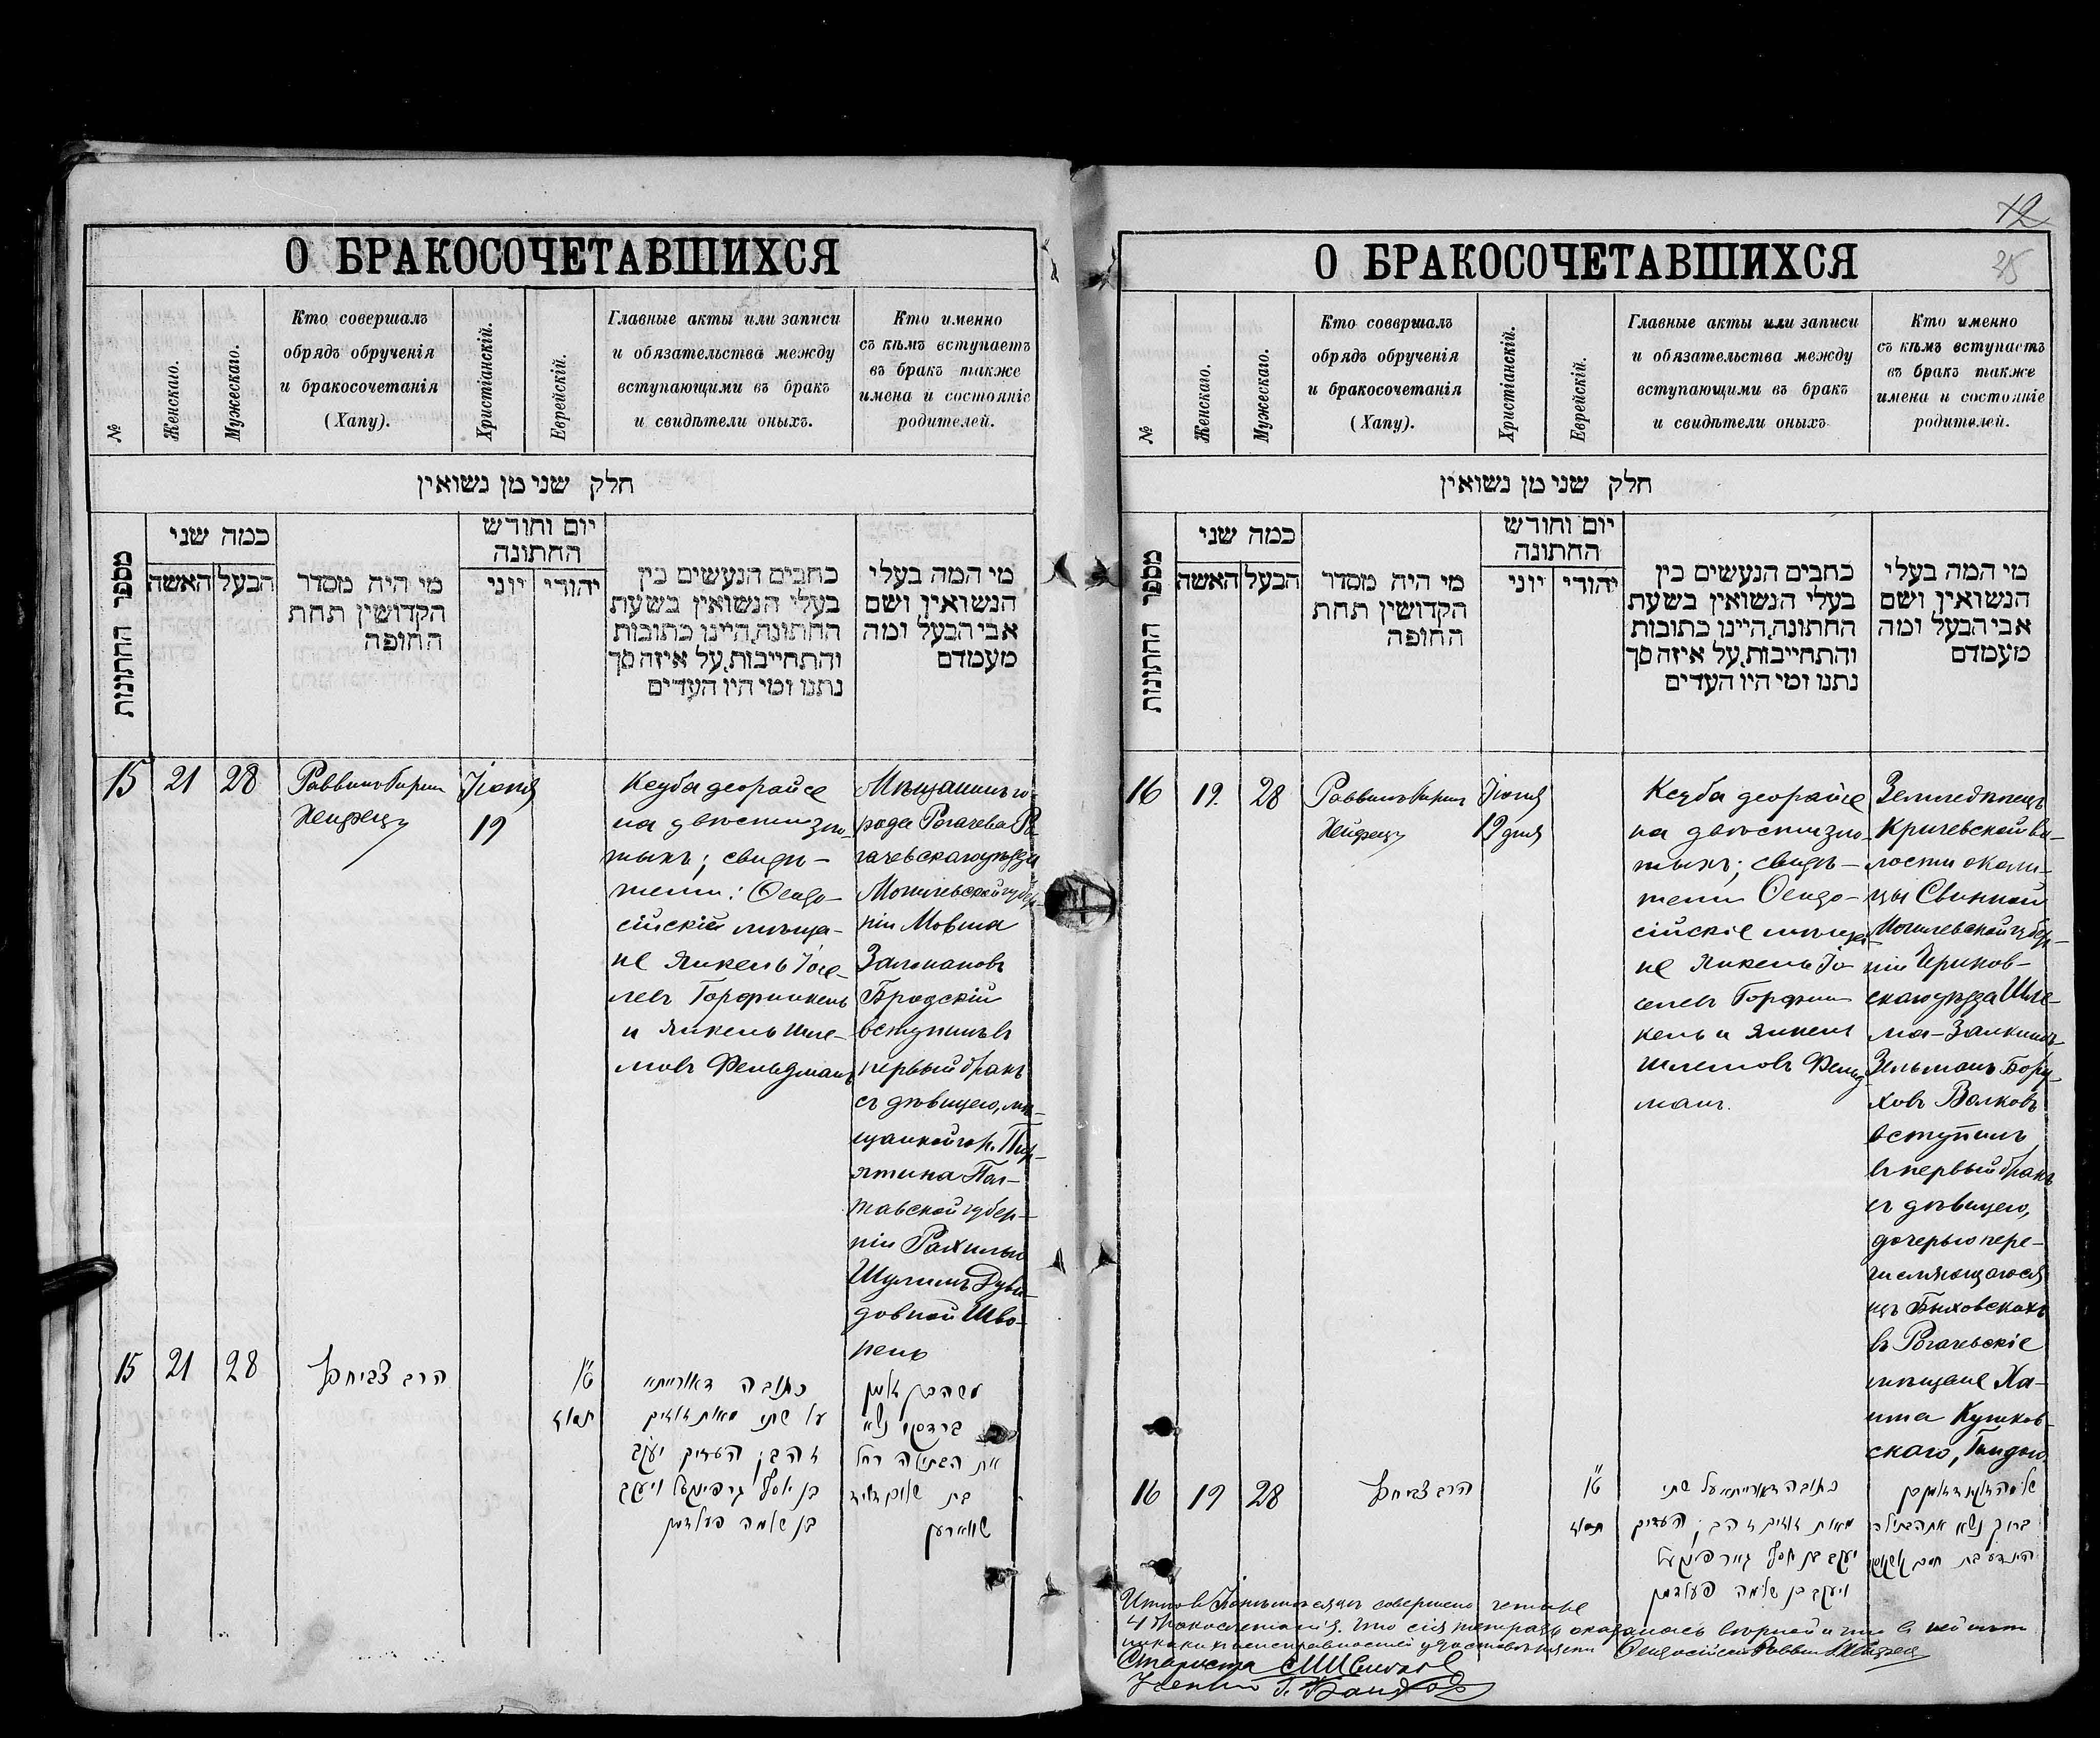 О БРАКОСОЧЕТАВШИХСЯ
№
Женскаго.
Мужескаго.
Кто совершалъ
обрядъ обрученія
и бракосочетанія
(Хапу).
Христіанскій.
Еврейскій.
Главные акты или записи
и обязательства между
вступающими въ бракъ
и свидѣтели оныхъ.
Кто именно
съ кѣмъ вступаетъ
въ бракъ также
имена и состояніе
родителей.
חלק שני מן נשואין
מספר החתונות
כמה שני
האשה
הבעל
מי היה מסדר
הקדושין תחת
החופה
יום וחודש
החתונה
יוני
יהודי
כתבים הנעשים בין
בעלי הנשואין בשעת
החתונה, היינו כתובות
והתחייבות, על איזה סך
נתנו ומי היו העדים
מי המה בעלי
הנשואין ושם
אבי הבעל ומה
מעמדם
15
21
28
Раввинъ
Хейфецъ
Іюня
19
Кеуба деорайсе
на двѣсти зло-
тыхъ; свидѣ-
тели: Ѳеодо-
сійскіе мѣща-
не Янкель Іосе-
левъ Горфинкель
и Янкель Шле-
мовъ Фельдманъ
Мѣщанинъ го-
рода Рогачева Ро-
гачевскаго уѣзда
Могилевской губер-
ніи Мовша
Залмановъ
Бродскій
вступилъ въ
первый бракъ
съ дѣвицею, мѣ-
щанкой гор. Пир-
ятина Пол-
тавской губер-
ніи Рахилью
Шулимъ Дуви-
довной Шво-
ренъ
15
21
28
הרב צבי חפץ
ט״ו
תמוז
כתובה דאורייתא
על שתי מאות זוזים
זהב; העדים יעקב
בן יוסף גרפינקעל ויעקב
בן שלמה פעלדמן
משה בן זלמן
ברדסקי נשא
את הבתולה רחל
בת שלום דוד
שווארען
12
25
О БРАКОСОЧЕТАВШИХСЯ
№
Женскаго.
Мужескаго.
Кто совершалъ
обрядъ обрученія
и бракосочетанія
(Хапу).
Христіанскій.
Еврейскій.
Главные акты или записи
и обязательства между
вступающими въ бракъ
и свидѣтели оныхъ.
Кто именно
съ кѣмъ вступаетъ
въ бракъ также
имена и состояніе
родителей.
חלק שני מן נשואין
מספר החתונות
כמה שני
האשה
הבעל
מי היה מסדר
הקדושין תחת
החופה
יום וחודש
החתונה
יוני
יהודי
כתבים הנעשים בין
בעלי הנשואין בשעת
החתונה, היינו כתובות
והתחייבות, על איזה סך
נתנו ומי היו העדים
מי המה בעלי
הנשואין ושם
אבי הבעל ומה
מעמדם
16
19
28
Раввинъ
Хейфецъ
Іюня
19 дня
Кеуба деорайсе
на двѣсти зло-
тыхъ; свидѣ-
тели Ѳеодо-
сійскіе мѣща-
не Янкель Іо-
селевъ Горфин-
кель и Янкель
Шлемовъ Фельд-
манъ.
Земледѣлецъ
Кричевской во-
лости околи-
цы Свинной
Могилевской губер-
ніи Чериков-
скаго уѣзда Шле-
ма-Залкинъ-
Зельманъ Бору-
ховъ Волковъ
вступилъ
въ первый бракъ
съ дѣвицею,
дочерью пере-
числяющагося
изъ Быховскихъ
въ Рогачевскіе
мѣщане Ха-
има Кушков-
скаго, Гиндою
16
19
28
הרב צבי חפץ
ט״ו
תמוז
כתובה דאורייתא על שתי
מאות זוזים זהב; העדים
יעקב בן יוסף גורפינקעל
ויעקב בן שלמה פעלדמן
ברוך נשא את הבתולה
הינדע בת חיים
Итого въ Іюнѣ мѣсяцѣ совершено четыре
4 бракосочетанія. Что сія тетрадь оказалась вѣрной и что въ ней нѣтъ
никакихъ неисправностей удостовѣряемъ Ѳеодосійскій Раввинъ Хейфецъ
Староста